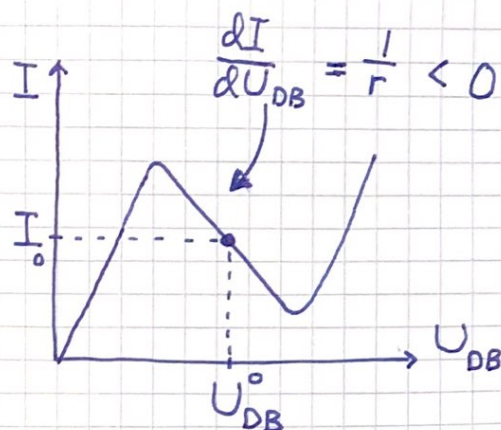 dI/dU_DB = 1/r < 0
I
I₀
U_DB
U°_DB